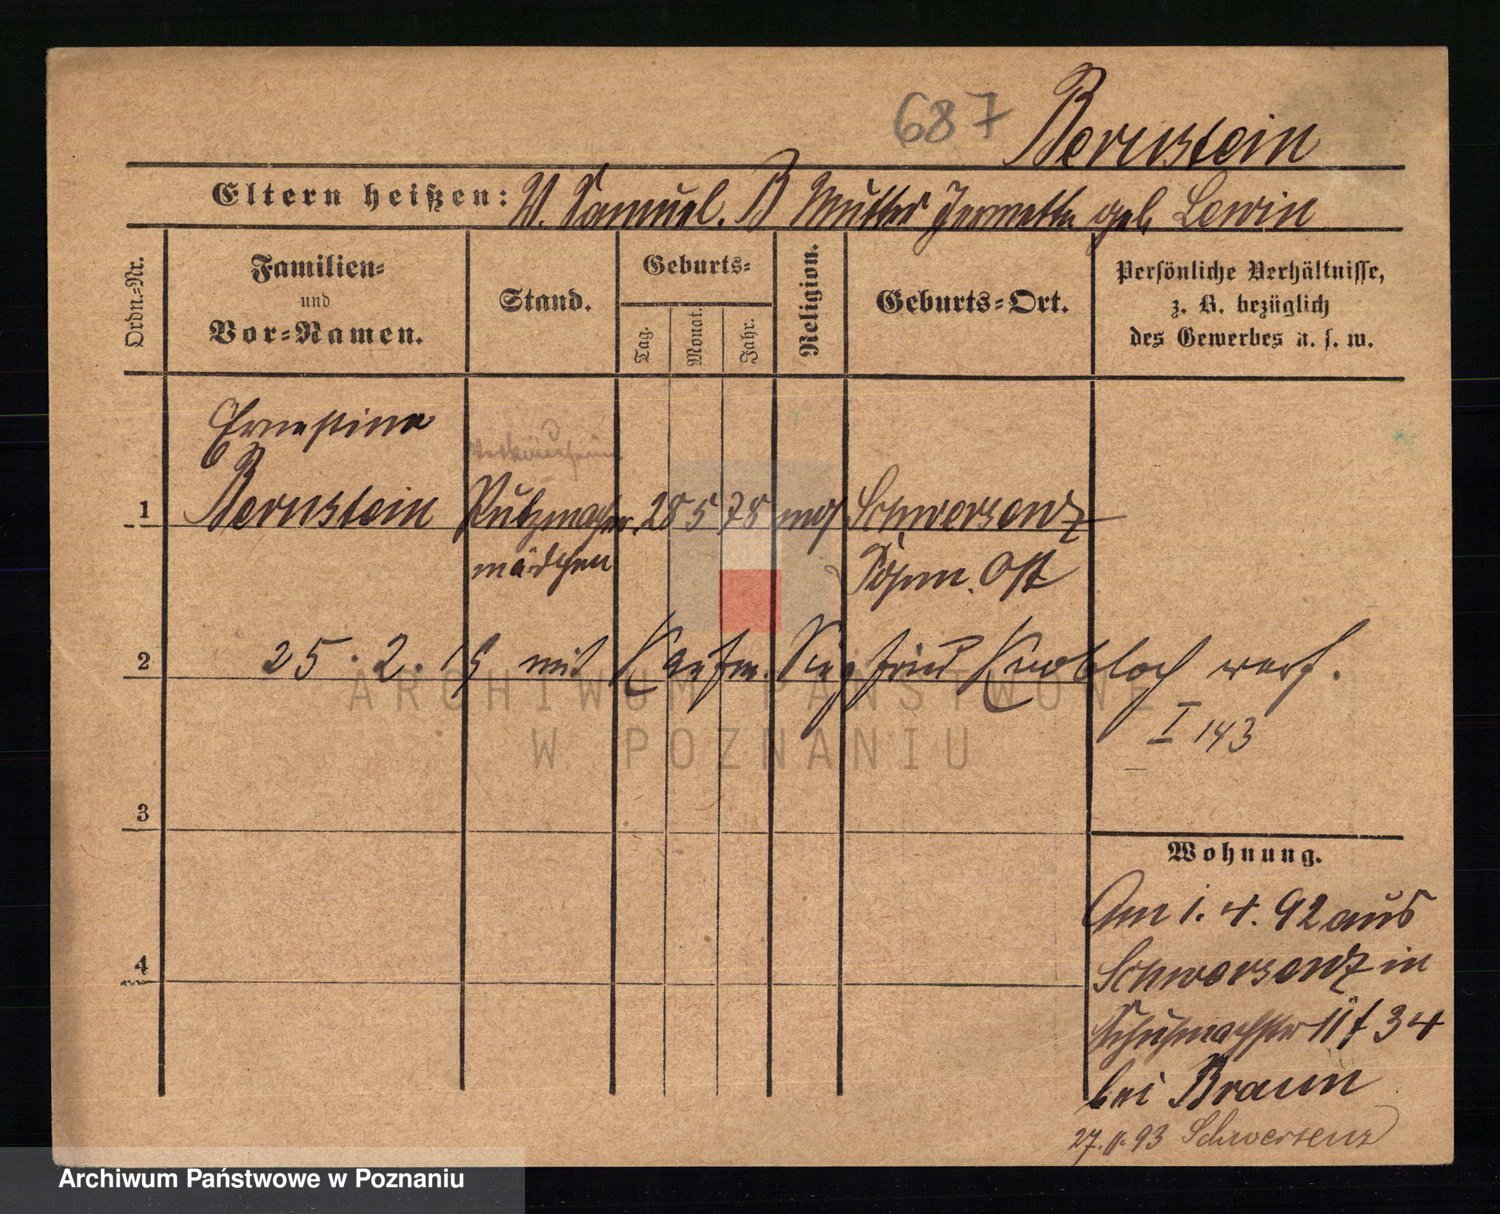 687 Bernstein
Eltern heißen: V. Samuel. B Mutter geb Lewin
Ordn.-Nr.
Familien-
und
Vor-Namen.
Stand.
Geburts-
Tag.
Monat.
Jahr.
Religion.
Geburts-Ort.
Persönliche Verhältnisse,
z. B. bezüglich
des Gewerbes u. s. w.
Ernestine
Verkäuferin
1 Bernstein Putzmacher 28 5 78 mos Schwersenz
mädchen Schrm. Ost
2 25. 2. 15 mit Kaufm. Siegfried Knobloch verh.
I 143
3
Wohnung.
Am 1. 4. 92 aus
Schwersenz in
4
Schuhmacherstr 11 f 34
bei Braun
27. 11. 93 Schwersenz
ARCHIWUM PAŃSTWOWE
W POZNANIU
Archiwum Państwowe w Poznaniu